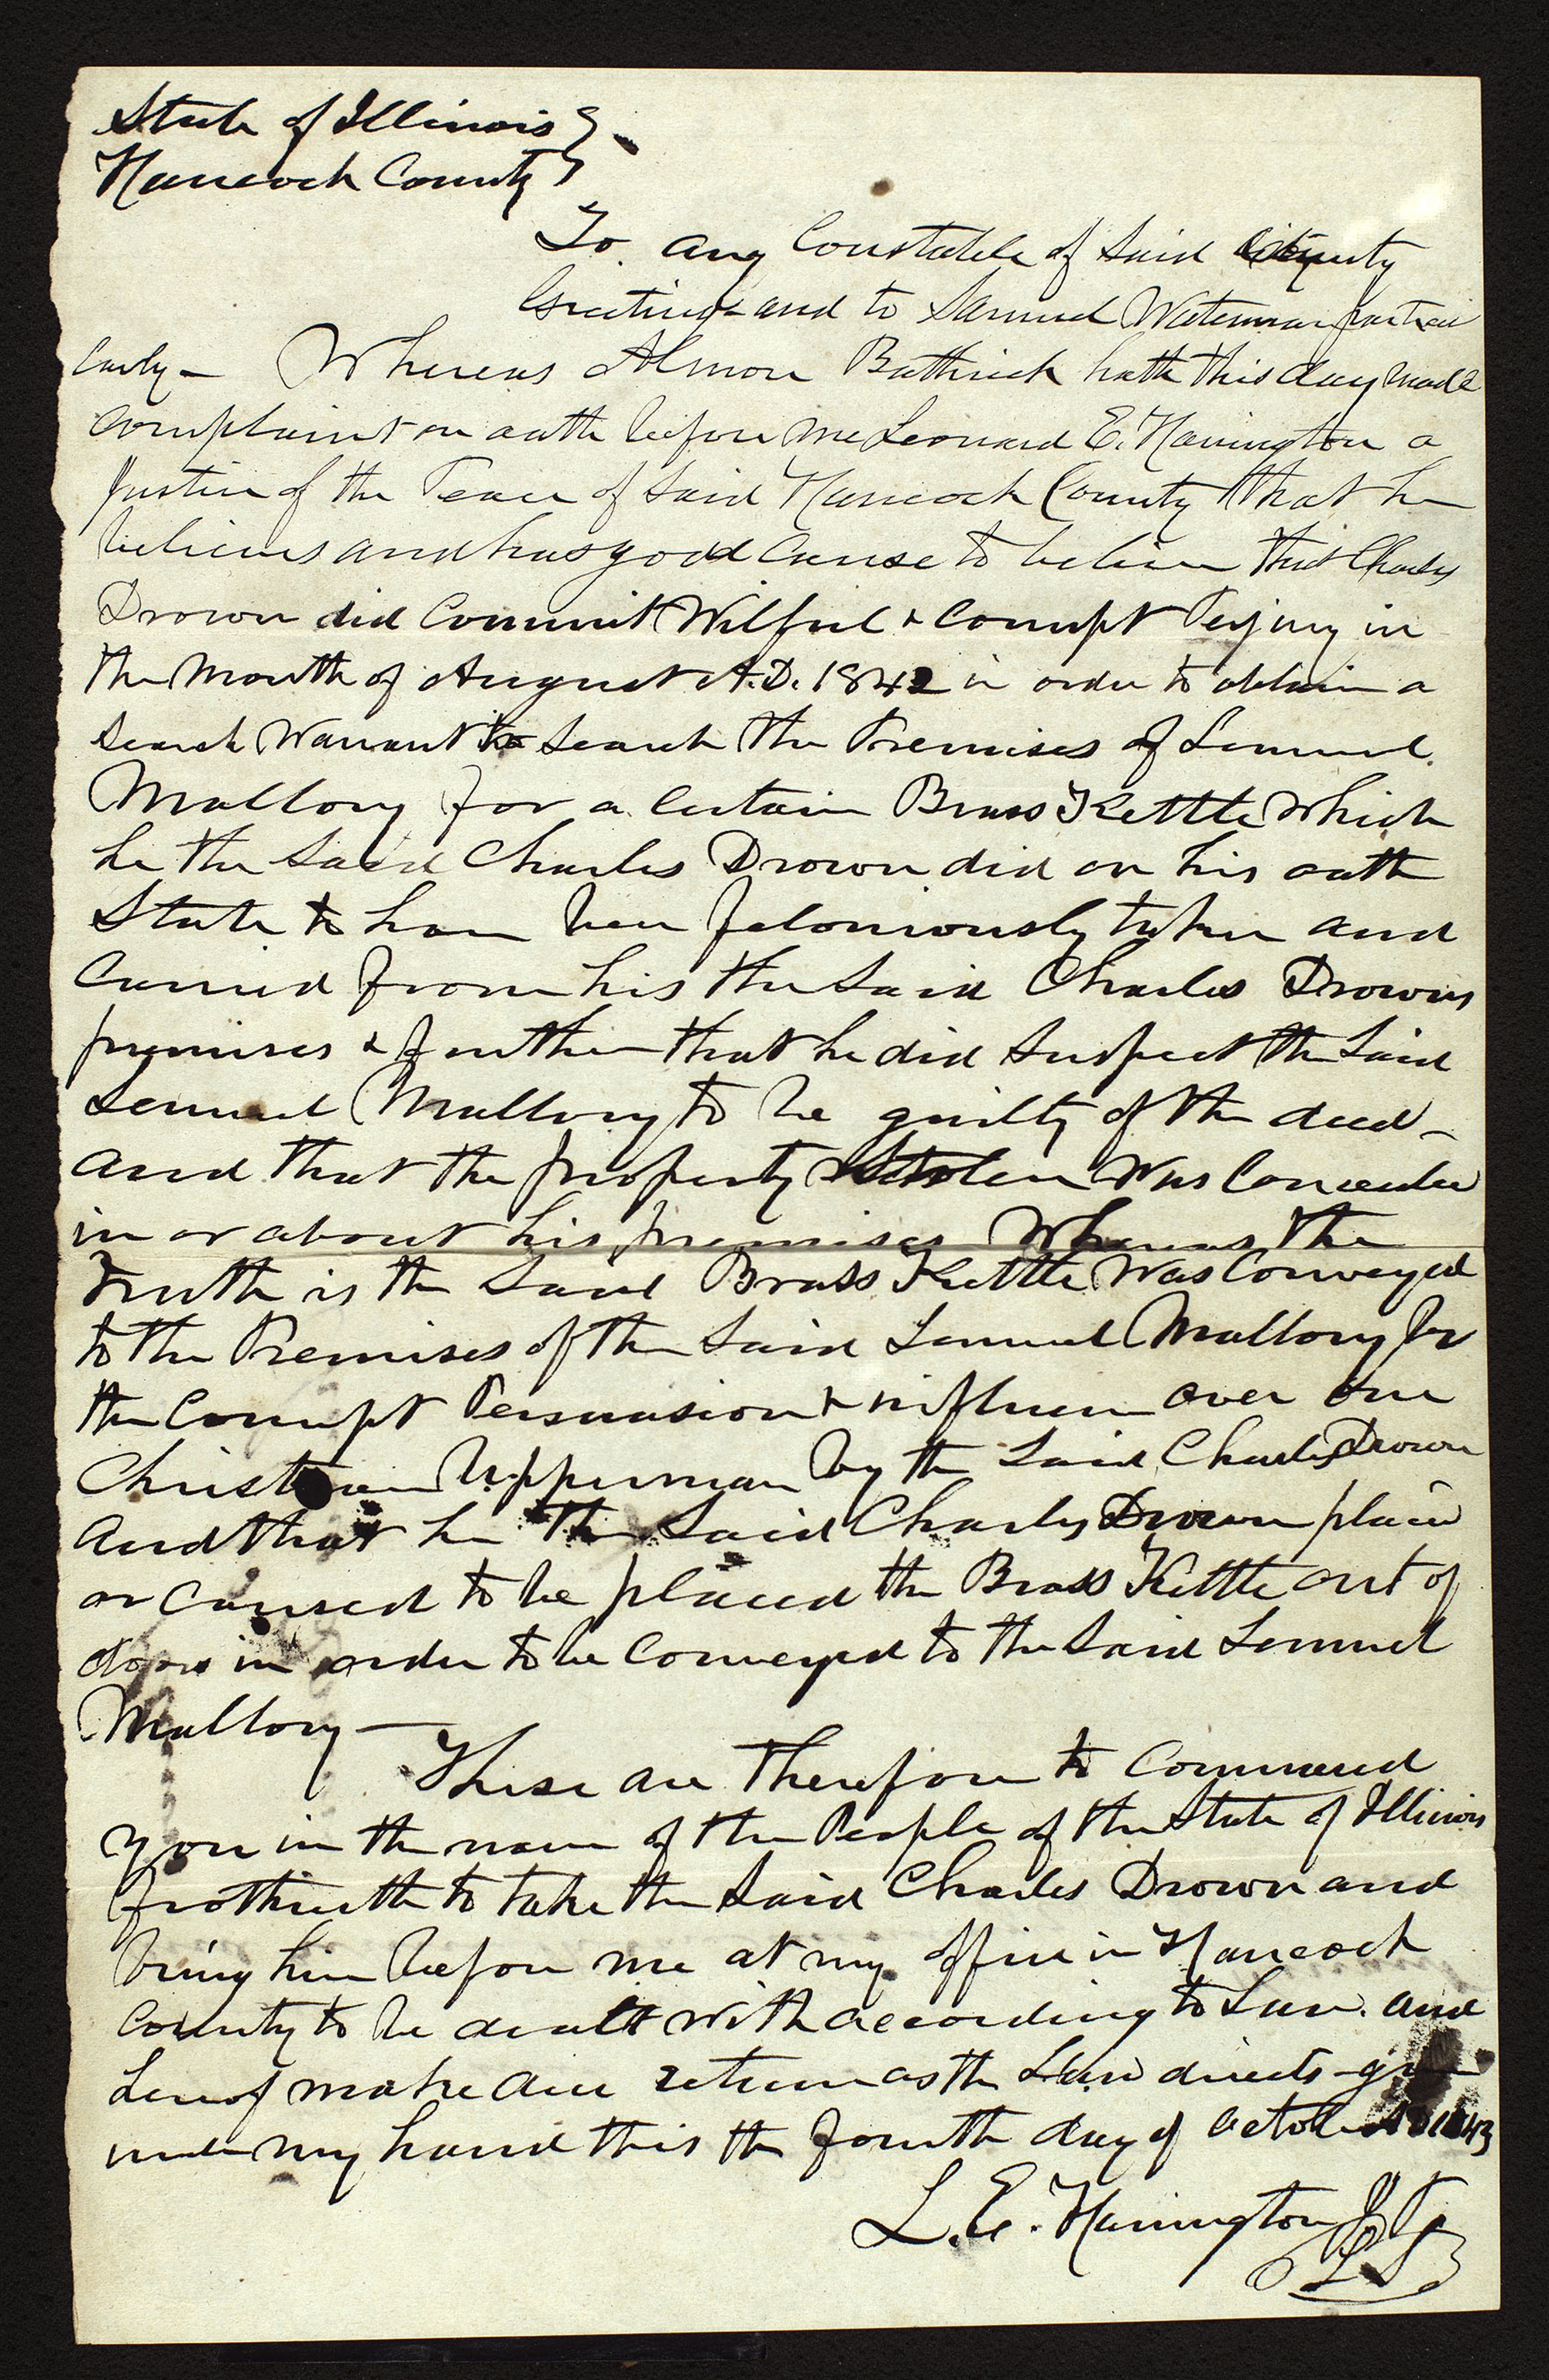 State of Illinois }
Hancock County }
To any Constable of Said County
Greeting and to Samuel Waterman particu
larly — Whereas Almon Buthrick hath this day made
complaint on oath before me Leonard E. Harrington a
Justice of the Peace of Said Hancock County that he
believes and has good cause to believe that Charles
Drown did Commit Wilful & Corrupt Perjury in
the Month of August A.D. 1842 in order to obtain a
Search Warrant to Search the Premises of Lemuel
Mallory for a Certain Brass Kettle which
he the Said Charles Drown did on his oath
State to have been feloniously taken and
Carried from his the Said Charles Drowns
premises & further that he did Suspect the Said
Lemuel Mallory to be guilty of the deed —
and that the property Stolen Was Concealed
in or about his premises Whereas the
Truth is the Said Brass Kettle Was Conveyed
to the Premises of the Said Lemuel Mallory by
the Corrupt Persuasion & influence over one
Christian Upperman by the Said Charles Drown
and that he the Said Charles Drown placed
or Caused to be placed the Brass Kettle out of
doors in order to be Conveyed to the Said Lemuel
Mallory —
These are Therefore to Command
you in the name of the People of the State of Illinois
forthwith to take the Said Charles Drown and
bring him before me at my office in Hancock
County to be dealt with according to Law. and
hereof make due return as the Law directs - given
under my hand this the fourth day of October AD 1843
L. E. Harrington J P
L S